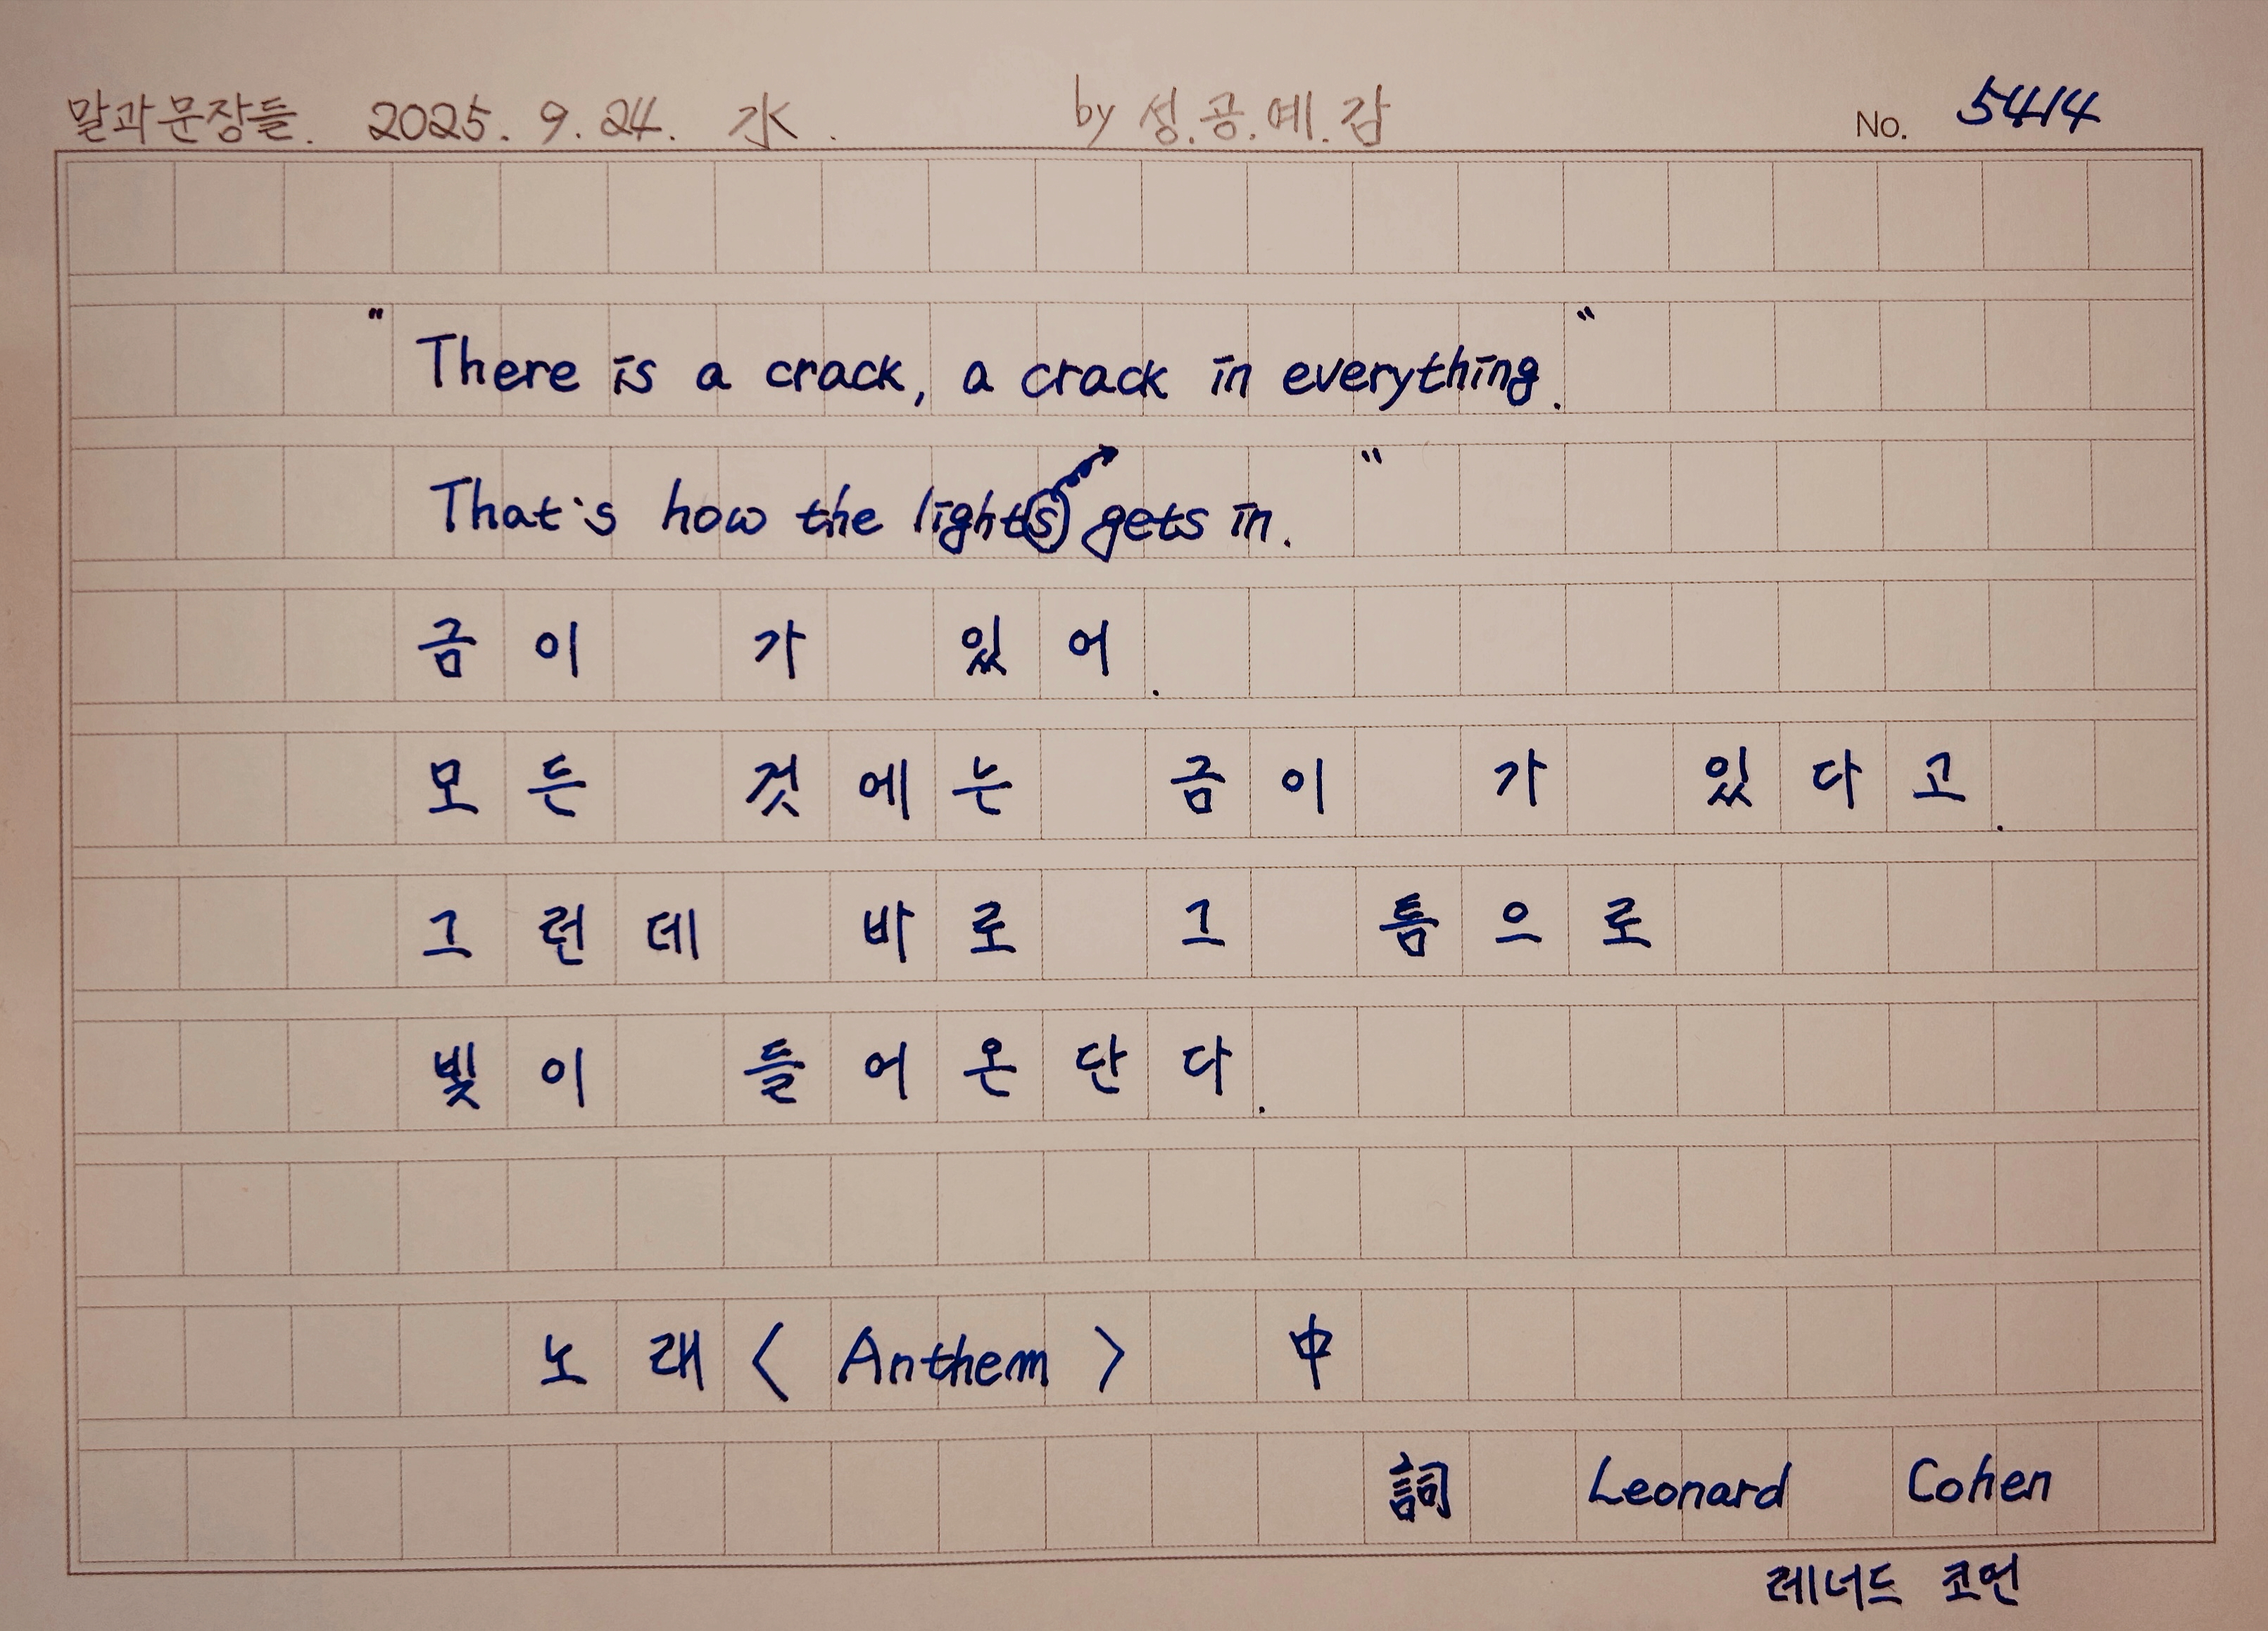 말과 문장들. 2025. 9. 24. 水. by 성.공.예.감 No. 5414
" There is a crack, a crack in everything. "
That's how the lights gets in. "
금이 가 있어.
모든 것에는 금이 가 있다고.
그런데 바로 그 틈으로
빛이 들어온단다.
노래 〈 Anthem 〉 中
詞 Leonard Cohen
레너드 코언